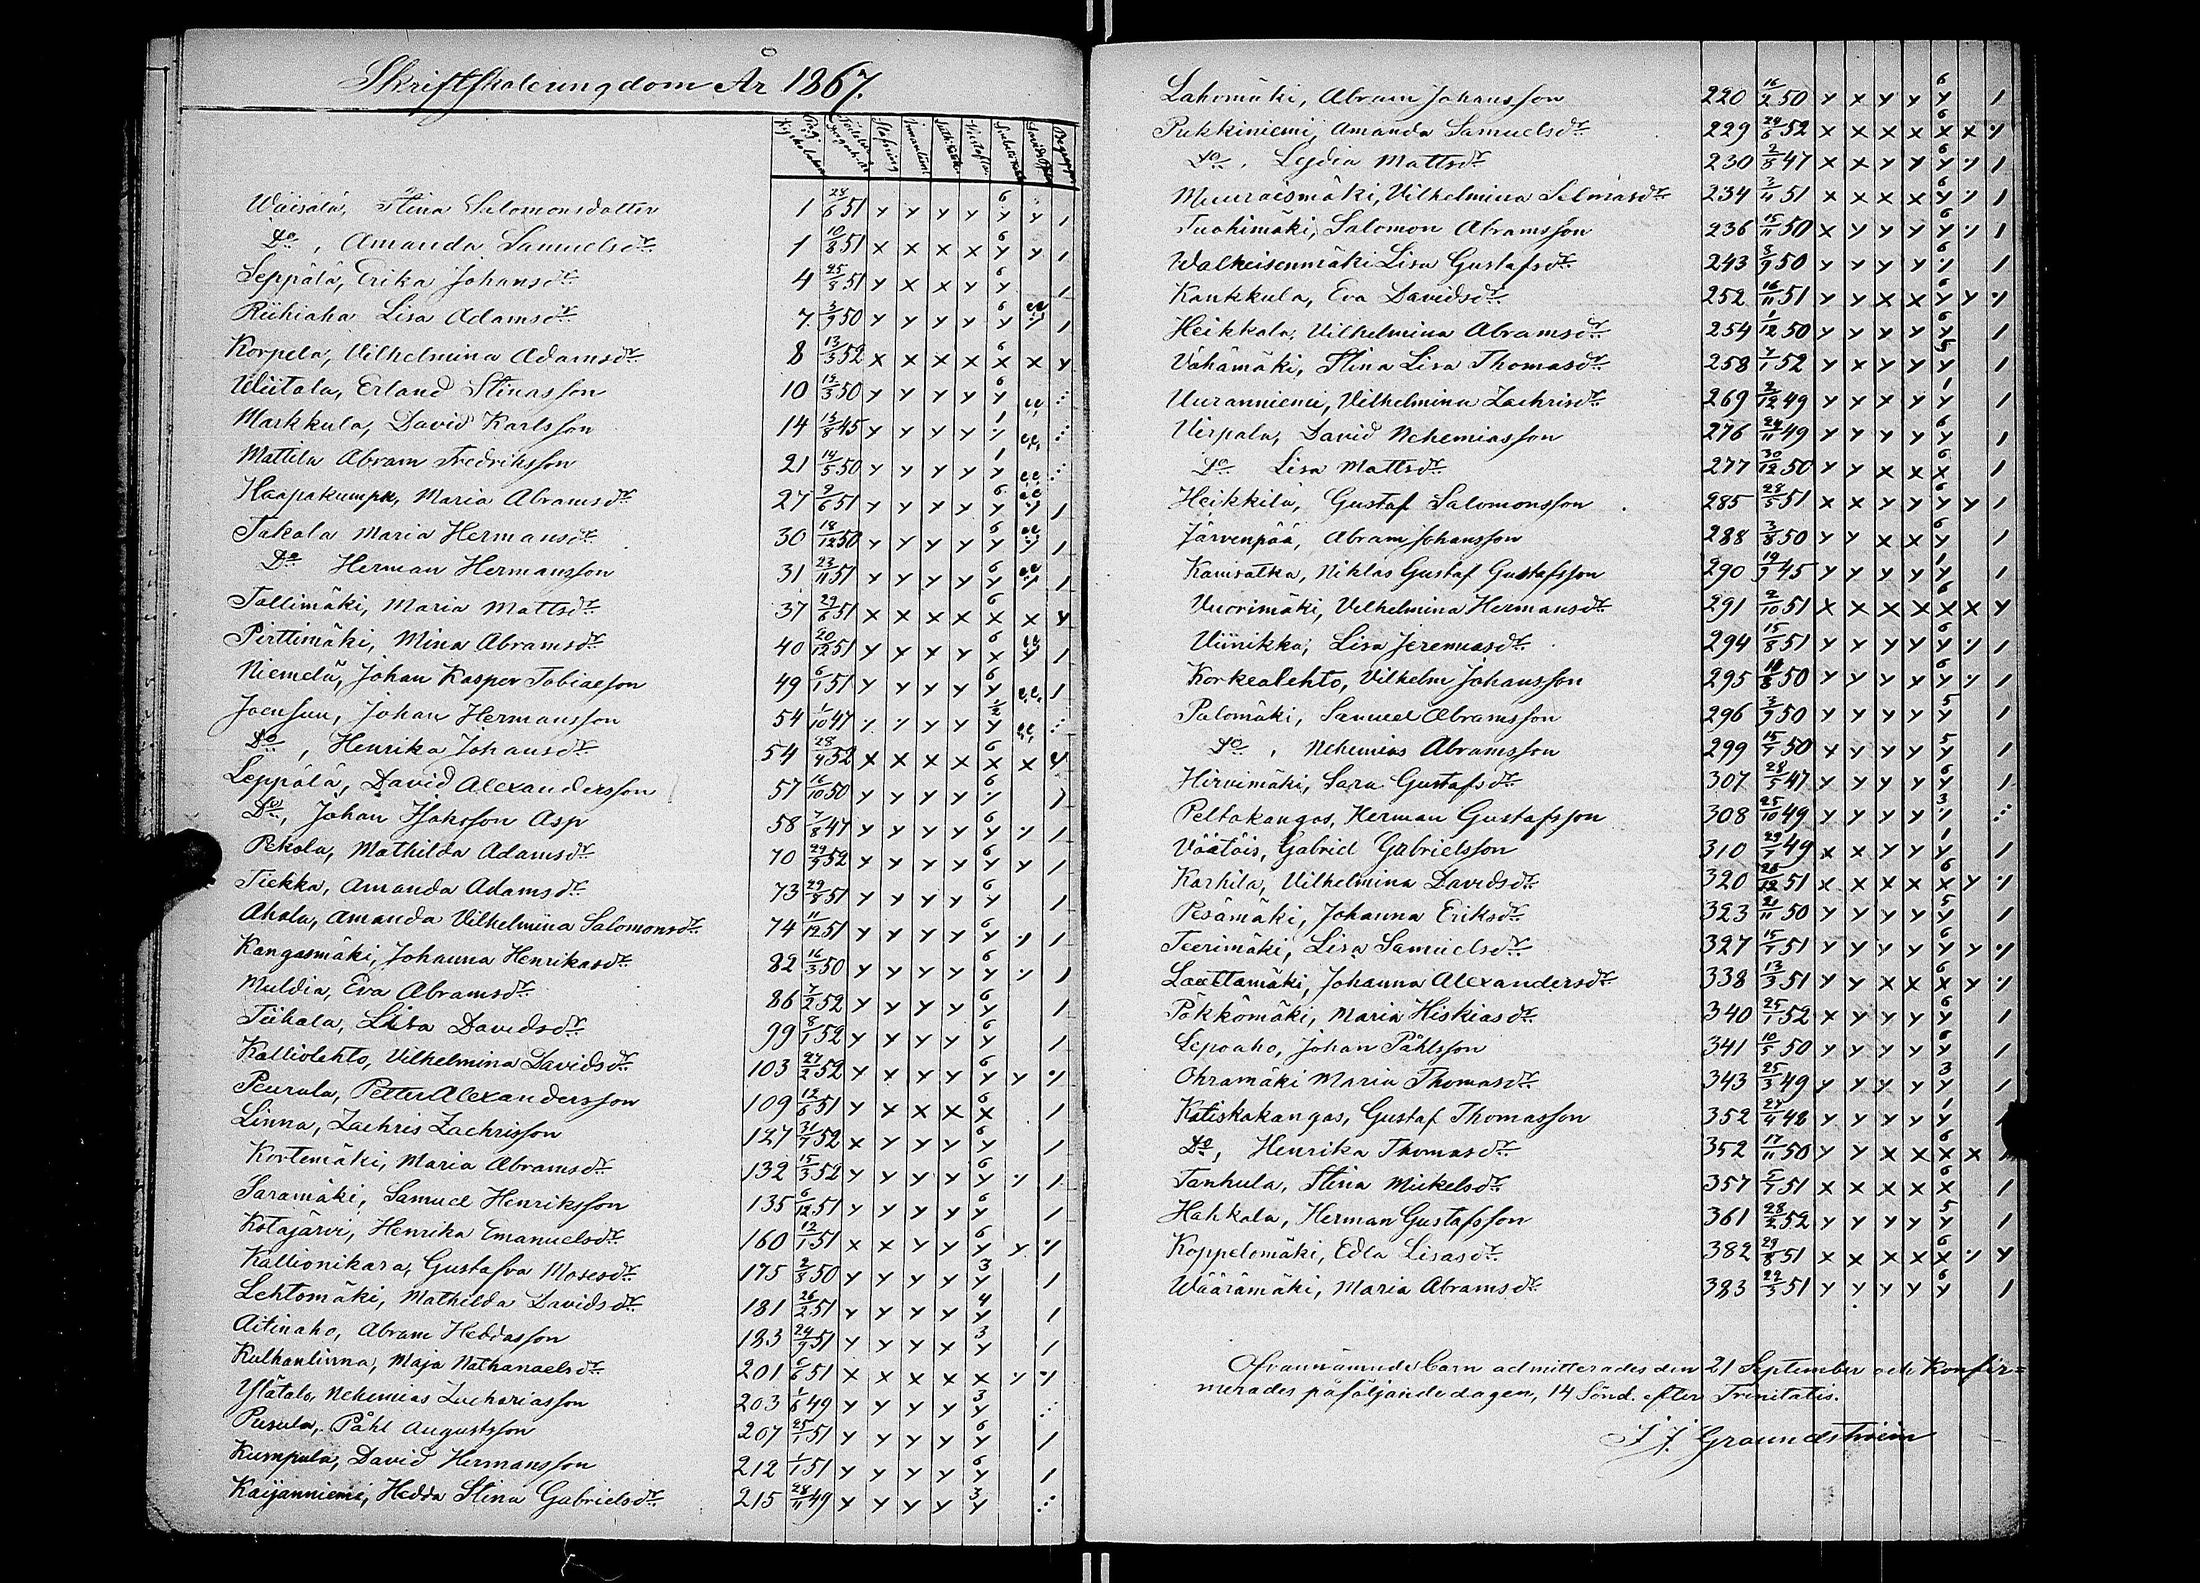 Skriftskoleungdom År 1867.
Wäisälä, Stina Salomonsdotter 1 28/6 51 y y y y 6/y y /
Do, Amanda Samuelsdr 1 10/8 51 x x x x 6/y y /
Seppälä, Erika Johansdr 4 25/8 51 y x x y 6/y /
Riihiaha Lisa Adamsdr 7. 3/9 50 y y y y 6/y /
Korpela, Vilhelmina Adamsdr 8 13/3 52 x x x x 6/x x y
Wiitala, Erland Stinasson 10 19/3 50 y y y y 6/y
Markkula, David Karlsson 14 13/8 45 y y y y 1
Mattila Abram Fredriksson 21 14/5 50 y y y y 1
Haapakumpu, Maria Abramsdr 27 9/6 51 y y y y 6/y /
Takala Maria Hermansdr 30 18/12 50 y y y y 6/y /
Do Herman Hermansson 31 23/11 51 y y y y 6/y /
Tallimäki, Maria Mattsdr 37 29/6 51 x x x x 6/x x y
Pirttimäki, Mina Abramsdr 40 20/12 51 y y y y 6/x /
Niemelä, Johan Kasper Tobiaeson 49 6/1 51 y y y y 6/y /
Joensuu, Johan Hermansson 54 1/10 47 ⁒ ⁒ y y y
Do, Henrika Johansdr 54 28/4 52 x x x x 6/x x y
Leppälä, David Alexandersson 57 16/10 50 y y y y 6/⁒ /
Do, Johan Isaksson Asp 58 7/8 47 y y y y 6/y ⁒ /
Pekola, Mathilda Adamsdr 70 29/9 52 x y y y 6/y y /
Tiekka, Amanda Adamsdr 73 29/8 51 y y y y 6/y /
Ahola, Amanda Vilhelmina Salomonsdr 74 11/12 51 y y y y 6/y ⁒ /
Kangasmäki, Johanna Henrikasdr 82 16/3 50 y y y y 6/y ⁒ /
Muldia, Eva Abramsdr 86 7/2 52 y y y y 6/y /
Tiihala, Lisa Davidsdr 99 8/1 52 y y y y 6/y /
Kalliolehto, Vilhelmina Davidsdr 103 27/2 52 y x y y 6/y y ⁒
Peurala, Petter Alexandersson 109 12/6 51 y x x x 6/x /
Linna, Zachris Zachrisson 127 31/7 52 x y y y 6/y /
Kortemäki, Maria Abramsdr 132 15/3 52 y y y y 6/y ⁒ /
Saramäki, Samuel Henriksson 135 6/12 51 y y y y 6/y /
Kotajärvi, Henrika Emanuelsdr 160 12/1 51 x x y y 6/y y ⁒
Kallionikara, Gustafva Mosesdr 175 2/3 50 y y y y 3/y /
Lehtomäki, Mathilda Davidsdr 181 26/2 51 y y y y 4/y /
Aitinaho, Abram Heddasson 183 24/9 51 y y y y 3/y /
Kulhanlinna, Maja Nathanaelsdr 201 6/6 51 x x x x x ⁒ ⁒
Ylätalo, Nehemias Zachariasson 203 1/6 49 y y y y 3/y
Pusula, Påhl Augustsson 207 25/1 51 y y y y 6/y /
Kumpula, David Hermansson 212 1/1 51 y y y y 6/y /
Kaijanniemi, Hedda Stina Gabrielsdr 215 28/11 49 y y y y 3/y
Lahomäki, Abram Johansson 220 16/2 50 y x y y 6/y /
Pukkiniemi, Amanda Samuelsdr 229 24/6 52 x x x x 6/x x ⁒
Do, Lydia Mattsdr 230 2/8 47 x x y y 6/y ⁒ /
Muuraismäki, Vilhelmina Selmasdr 234 3/4 51 x x x x 6/y ⁒ /
Tuohimäki, Salomon Abramsson 236 15/11 50 x y y y 6/y ⁒ /
Walkeisenmäki Lisa Gustafsdr 243 8/9 50 y y y y 6/⁒ /
Kankkula, Eva Davidsdr 252 16/11 51 y y x x 6/y y ⁒
Heikkala, Vilhelmina Abramsdr 254 1/12 50 y y y y 6/y /
Vähämäki, Stina Lisa Thomasdr 258 7/1 52 y x y y 5/y /
Uuranniemi, Vilhelmina Zachrisdr 269 2/12 49 y x x y 1/y /
Vierpala, David Nehemiasson 276 24/11 49 y y y y 6/y /
Do Lisa Mattsdr 277 30/12 50 y y x x 6/x /
Heikkilä, Gustaf Salomonsson 285 28/5 51 x x y y 6/y y /
Järvenpää, Abram Johansson 288 3/8 50 y y x x 6/y /
Kamsatka, Niklas Gustaf Gustafsson 290 19/9 45 y y y y 1/y /
Vuorimäki, Vilhelmina Hermansdr 291 2/10 51 x x x x 6/x x y
Viinikka, Lisa Jeremiasdr 294 15/8 51 y y y y 6/y ⁒ /
Korkealehto, Vilhelm Johansson 295 18/8 50 y y y y 6/y ⁒ /
Palomäki, Samuel Abramsson 296 3/9 50 y y y y 5/y /
Do, Nehemias Abramsson 299 15/1 50 x y y y 5/y /
Hirvimäki, Sara Gustafsdr 307 28/5 47 y y y y 6/y /
Peltokangas, Herman Gustafsson 308 25/10 49 y y y y 3/⁒
Väätäis, Gabriel Gabrielsson 310 29/7 49 x x y y 1/y /
Karhila, Vilhelmina Davidsdr 320 26/12 51 x x x x 6/x y ⁒
Pesämäki, Johanna Eriksdr 323 21/11 50 y y y y 5/y /
Teerimäki, Lisa Samuelsdr 327 15/7 51 y y y y 6/y y ⁒
Laattamäki, Johanna Alexandersdr 338 13/3 51 y y x x 6/x y ⁒
Päkkömäki, Maria Hiskiasdr 340 25/1 52 x y y y 6/y /
Lepoaho, Johan Påhlsson 341 10/5 50 y y y y 6/y /
Ohramäki Maria Thomasdr 343 25/3 49 y y y y 3/y /
Katiskakangas, Gustaf Thomasson 352 27/4 48 y y y y 1/y /
Do, Henrika Thomasdr 352 17/11 50 y y x x 6/x x
Tanhula, Stina Mickelsdr 357 5/7 51 x x x x 6/x /
Hahkala, Herman Gustafsson 361 28/2 52 y y y y 5/y /
Koppelomäki, Edla Lisasdr 382 29/8 51 x x x x 6/x ⁒ y
Wäärämäki, Maria Abramsdr 383 22/3 51 y y y y 6/y /
Ofvannämnde barn admitterades den 21 September och Konfir=
merades påföljande dagen, 14 Sönd. efter Trinitatis.
J J Graundstroem